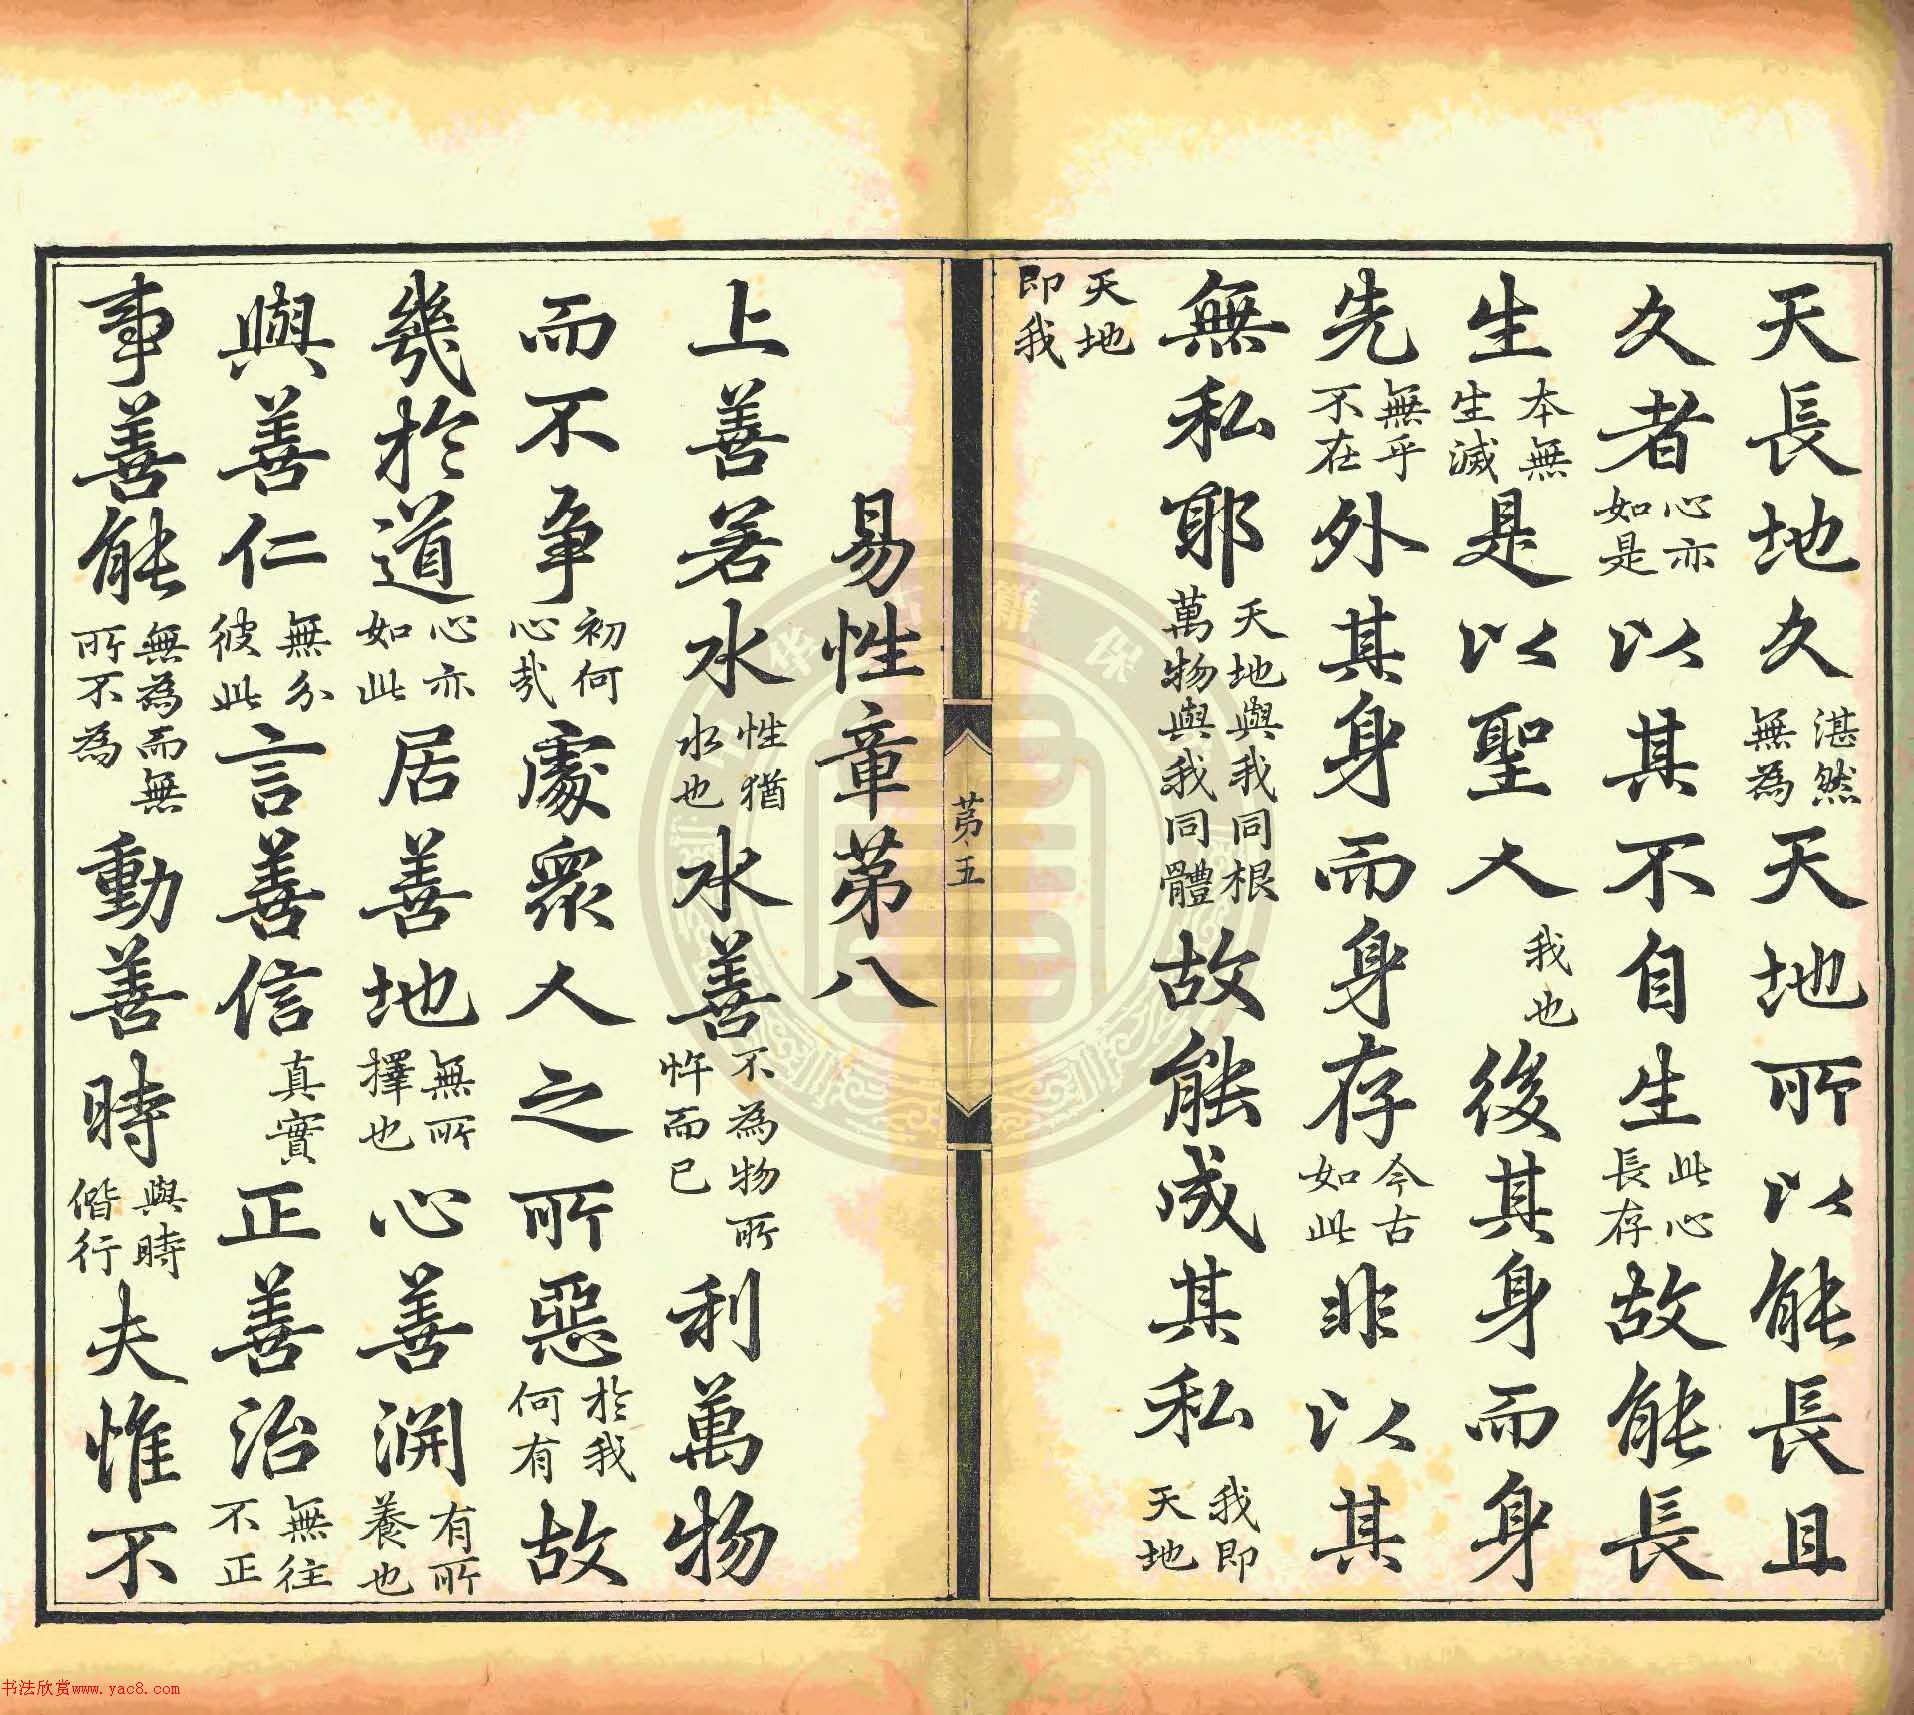 天長地久湛然無為天地所以能長且
久者心亦如是以其不自生此心長存故能長
生本無生滅是以聖人我也後其身而身
先無乎不在外其身而身存今古如此非以其
無私耶天地與我同根萬物與我同體故能成其私我即天地
天地即我
苐五
易性章苐八
上善若水性猶水也水善不為物所忤而已利萬物
而不爭初何心哉處眾人之所惡於我何有故
幾於道心亦如此居善地無所擇也心善淵有所養也
與善仁無分彼此言善信真實正善治無往不正
事善能無為而無所不為動善時與時偕行夫惟不
书法欣赏www.yac8.com